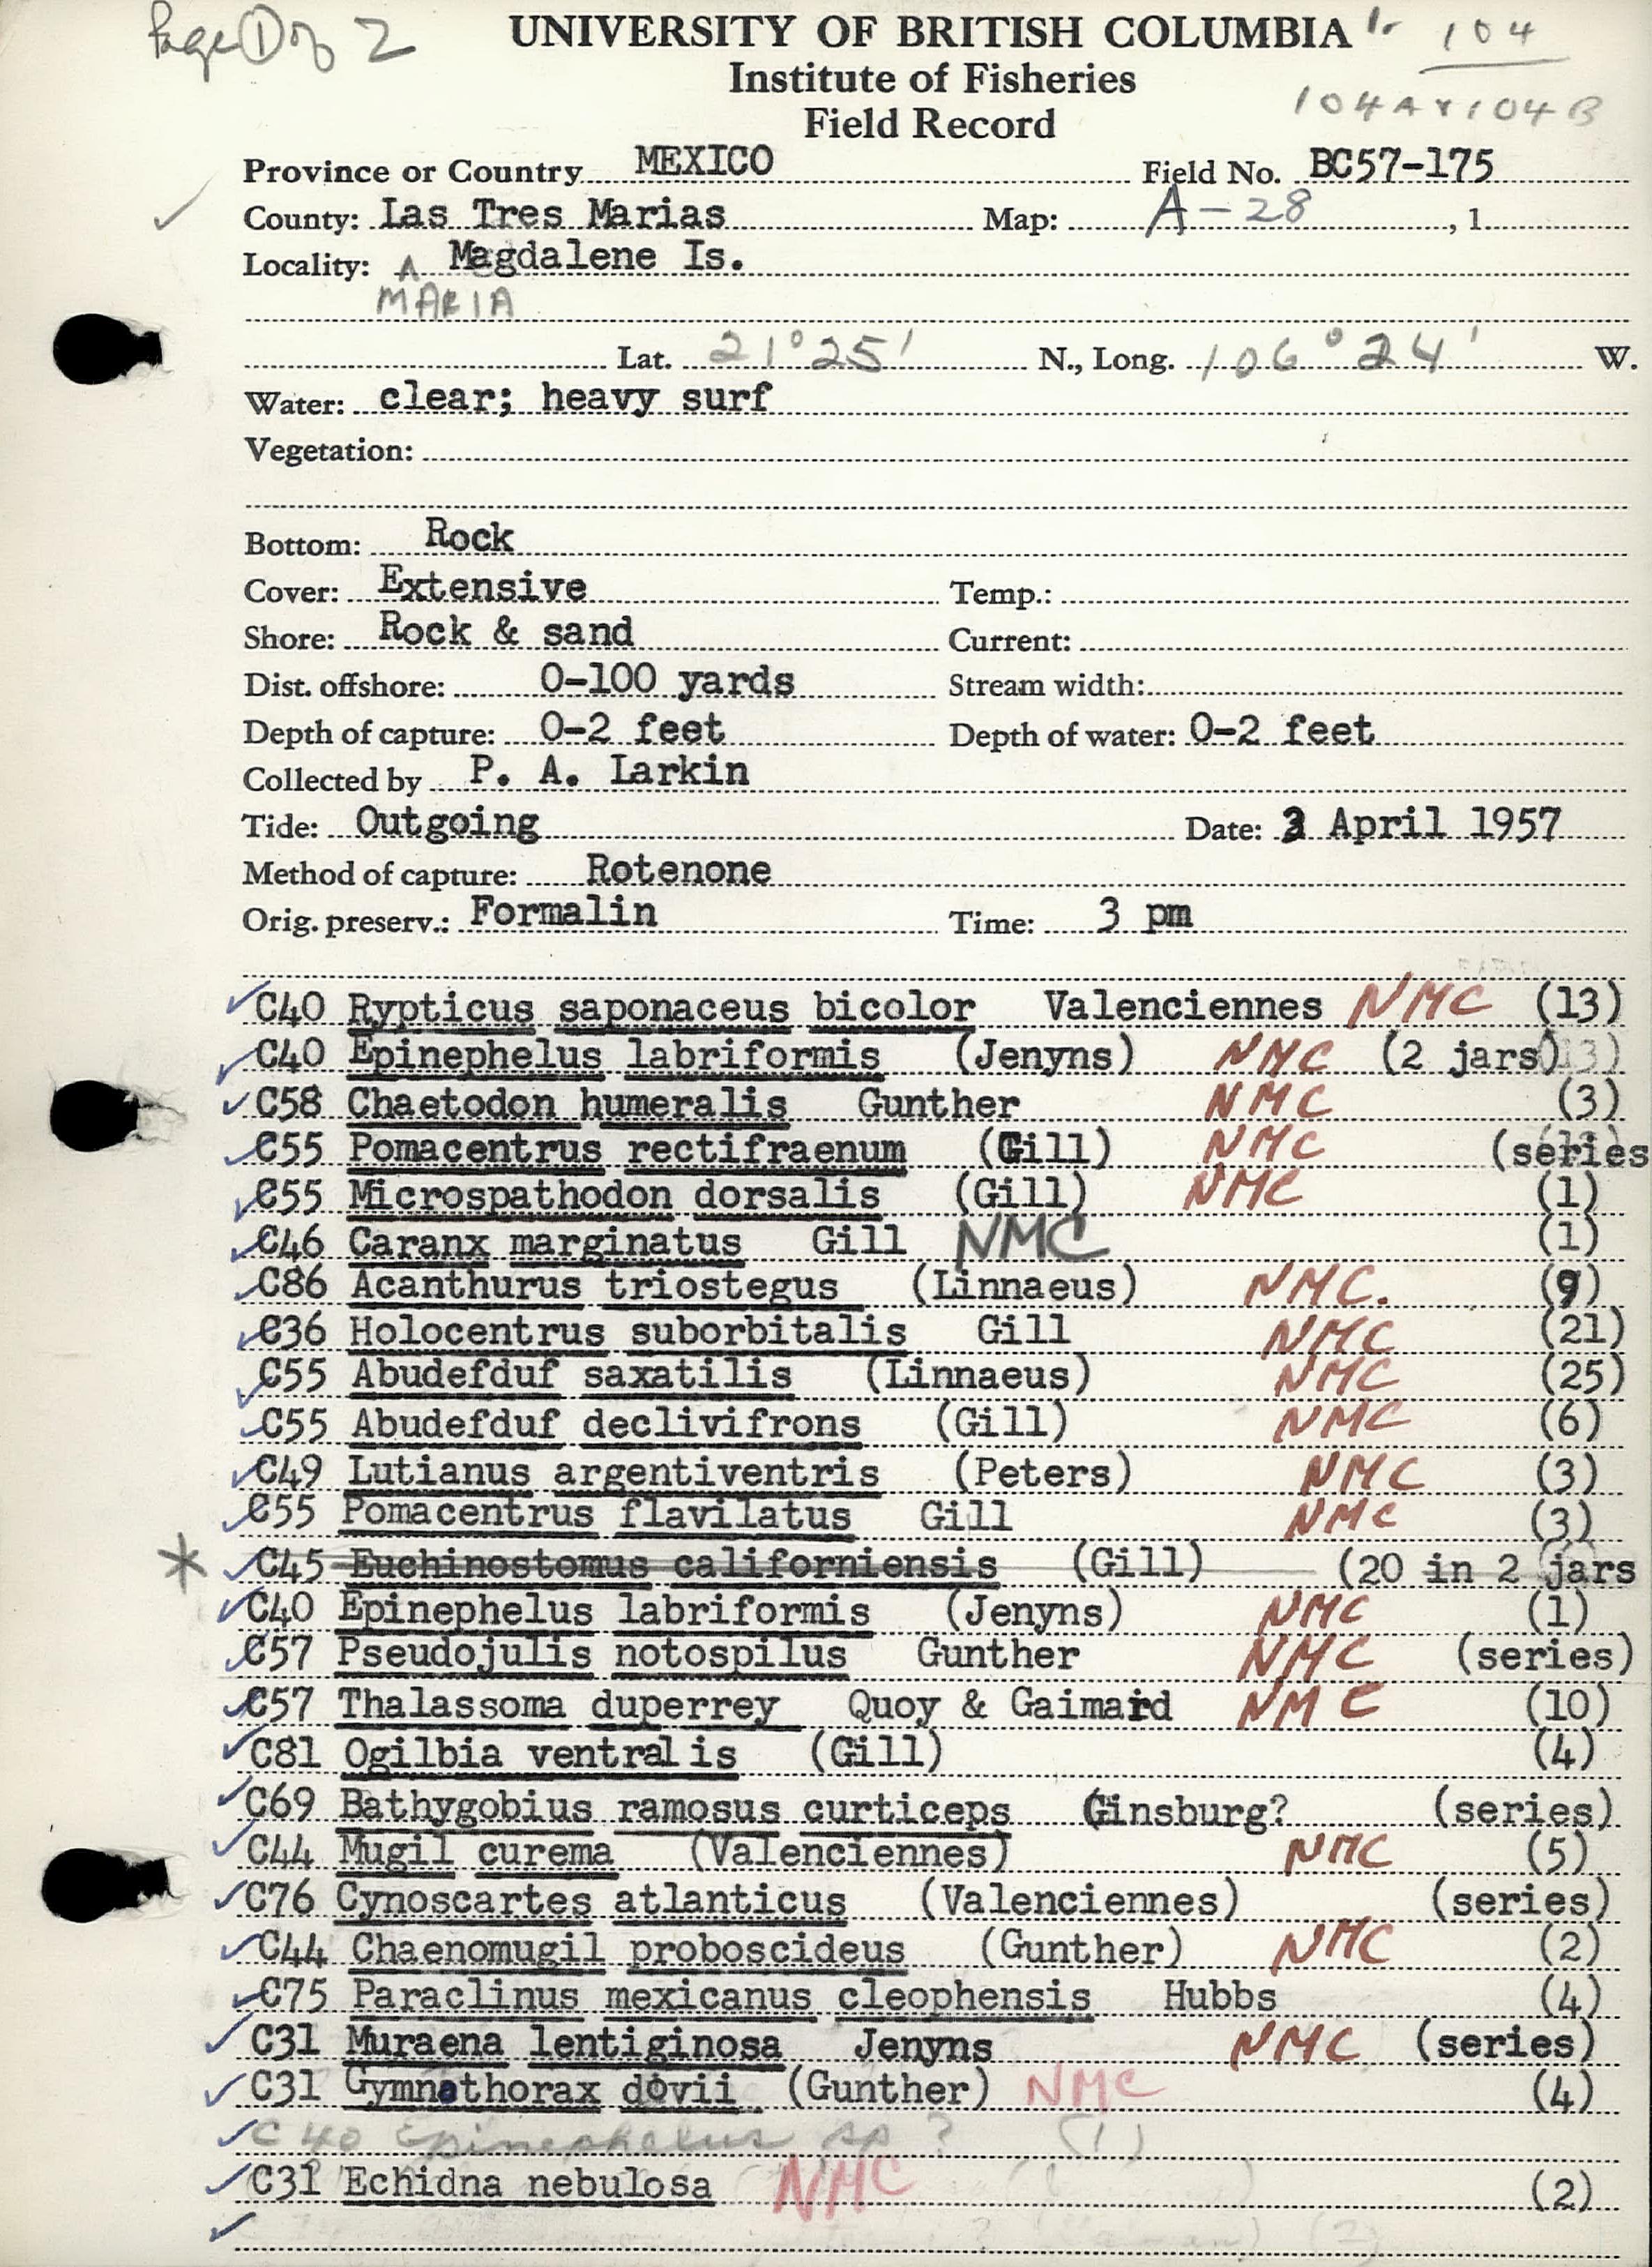 Page 1 of 2
UNIVERSITY OF BRITISH COLUMBIA 104
Institute of Fisheries 104A & 104B
Field Record
Province or Country MEXICO Field No. BC57-175
County: Las Tres Marias Map: A-28, 1.
Locality: ^ Magdalene Is.
MARIA
Lat. 21°25' N., Long. 106°24' W.
Water: clear; heavy surf
Vegetation:
Bottom: Rock
Cover: Extensive Temp.:
Shore: Rock & sand Current:
Dist. offshore: 0-100 yards Stream width:
Depth of capture: 0-2 feet Depth of water: 0-2 feet
Collected by P. A. Larkin
Tide: Outgoing Date: April 1957
Method of capture: Rotenone
Orig. preserv.: Formalin Time: 3 pm
C40 Rypticus saponaceus bicolor Valenciennes NMC (13)
C40 Epinephelus labriformis (Jenyns) NMC (2 jars) 13)
C58 Chaetodon humeralis Gunther NMC (3)
C55 Pomacentrus rectifraenum (Gill) NMC (series
C55 Microspathodon dorsalis (Gill) NMC (1)
C46 Caranx marginatus Gill NMC (1)
C86 Acanthurus triostegus (Linnaeus) NMC. (9)
C36 Holocentrus suborbitalis Gill NMC (21)
C55 Abudefduf saxatilis (Linnaeus) NMC (25)
C55 Abudefduf declivifrons (Gill) NMC (6)
C49 Lutianus argentiventris (Peters) NMC (3)
C55 Pomacentrus flavilatus Gill NMC (3)
* C45 Euchinostomus californiensis (Gill) (20 in 2 jars
C40 Epinephelus labriformis (Jenyns) NMC (1)
C57 Pseudojulis notospilus Gunther NMC (series)
C57 Thalassoma duperrey Quoy & Gaimard NMC (10)
C81 Ogilbia ventralis (Gill) (4)
C69 Bathygobius ramosus curticeps Ginsburg? (series)
C44 Mugil curema (Valenciennes) NMC (5)
C76 Cynoscartes atlanticus (Valenciennes) (series)
C44 Chaenomugil proboscideus (Gunther) NMC (2)
C75 Paraclinus mexicanus cleophensis Hubbs (4)
C31 Muraena lentiginosa Jenyns NMC (series)
C31 Gymnothorax dovii (Gunther) NMC (4)
C 40 Epinephelus sp ? (1)
C31 Echidna nebulosa NMC (2)